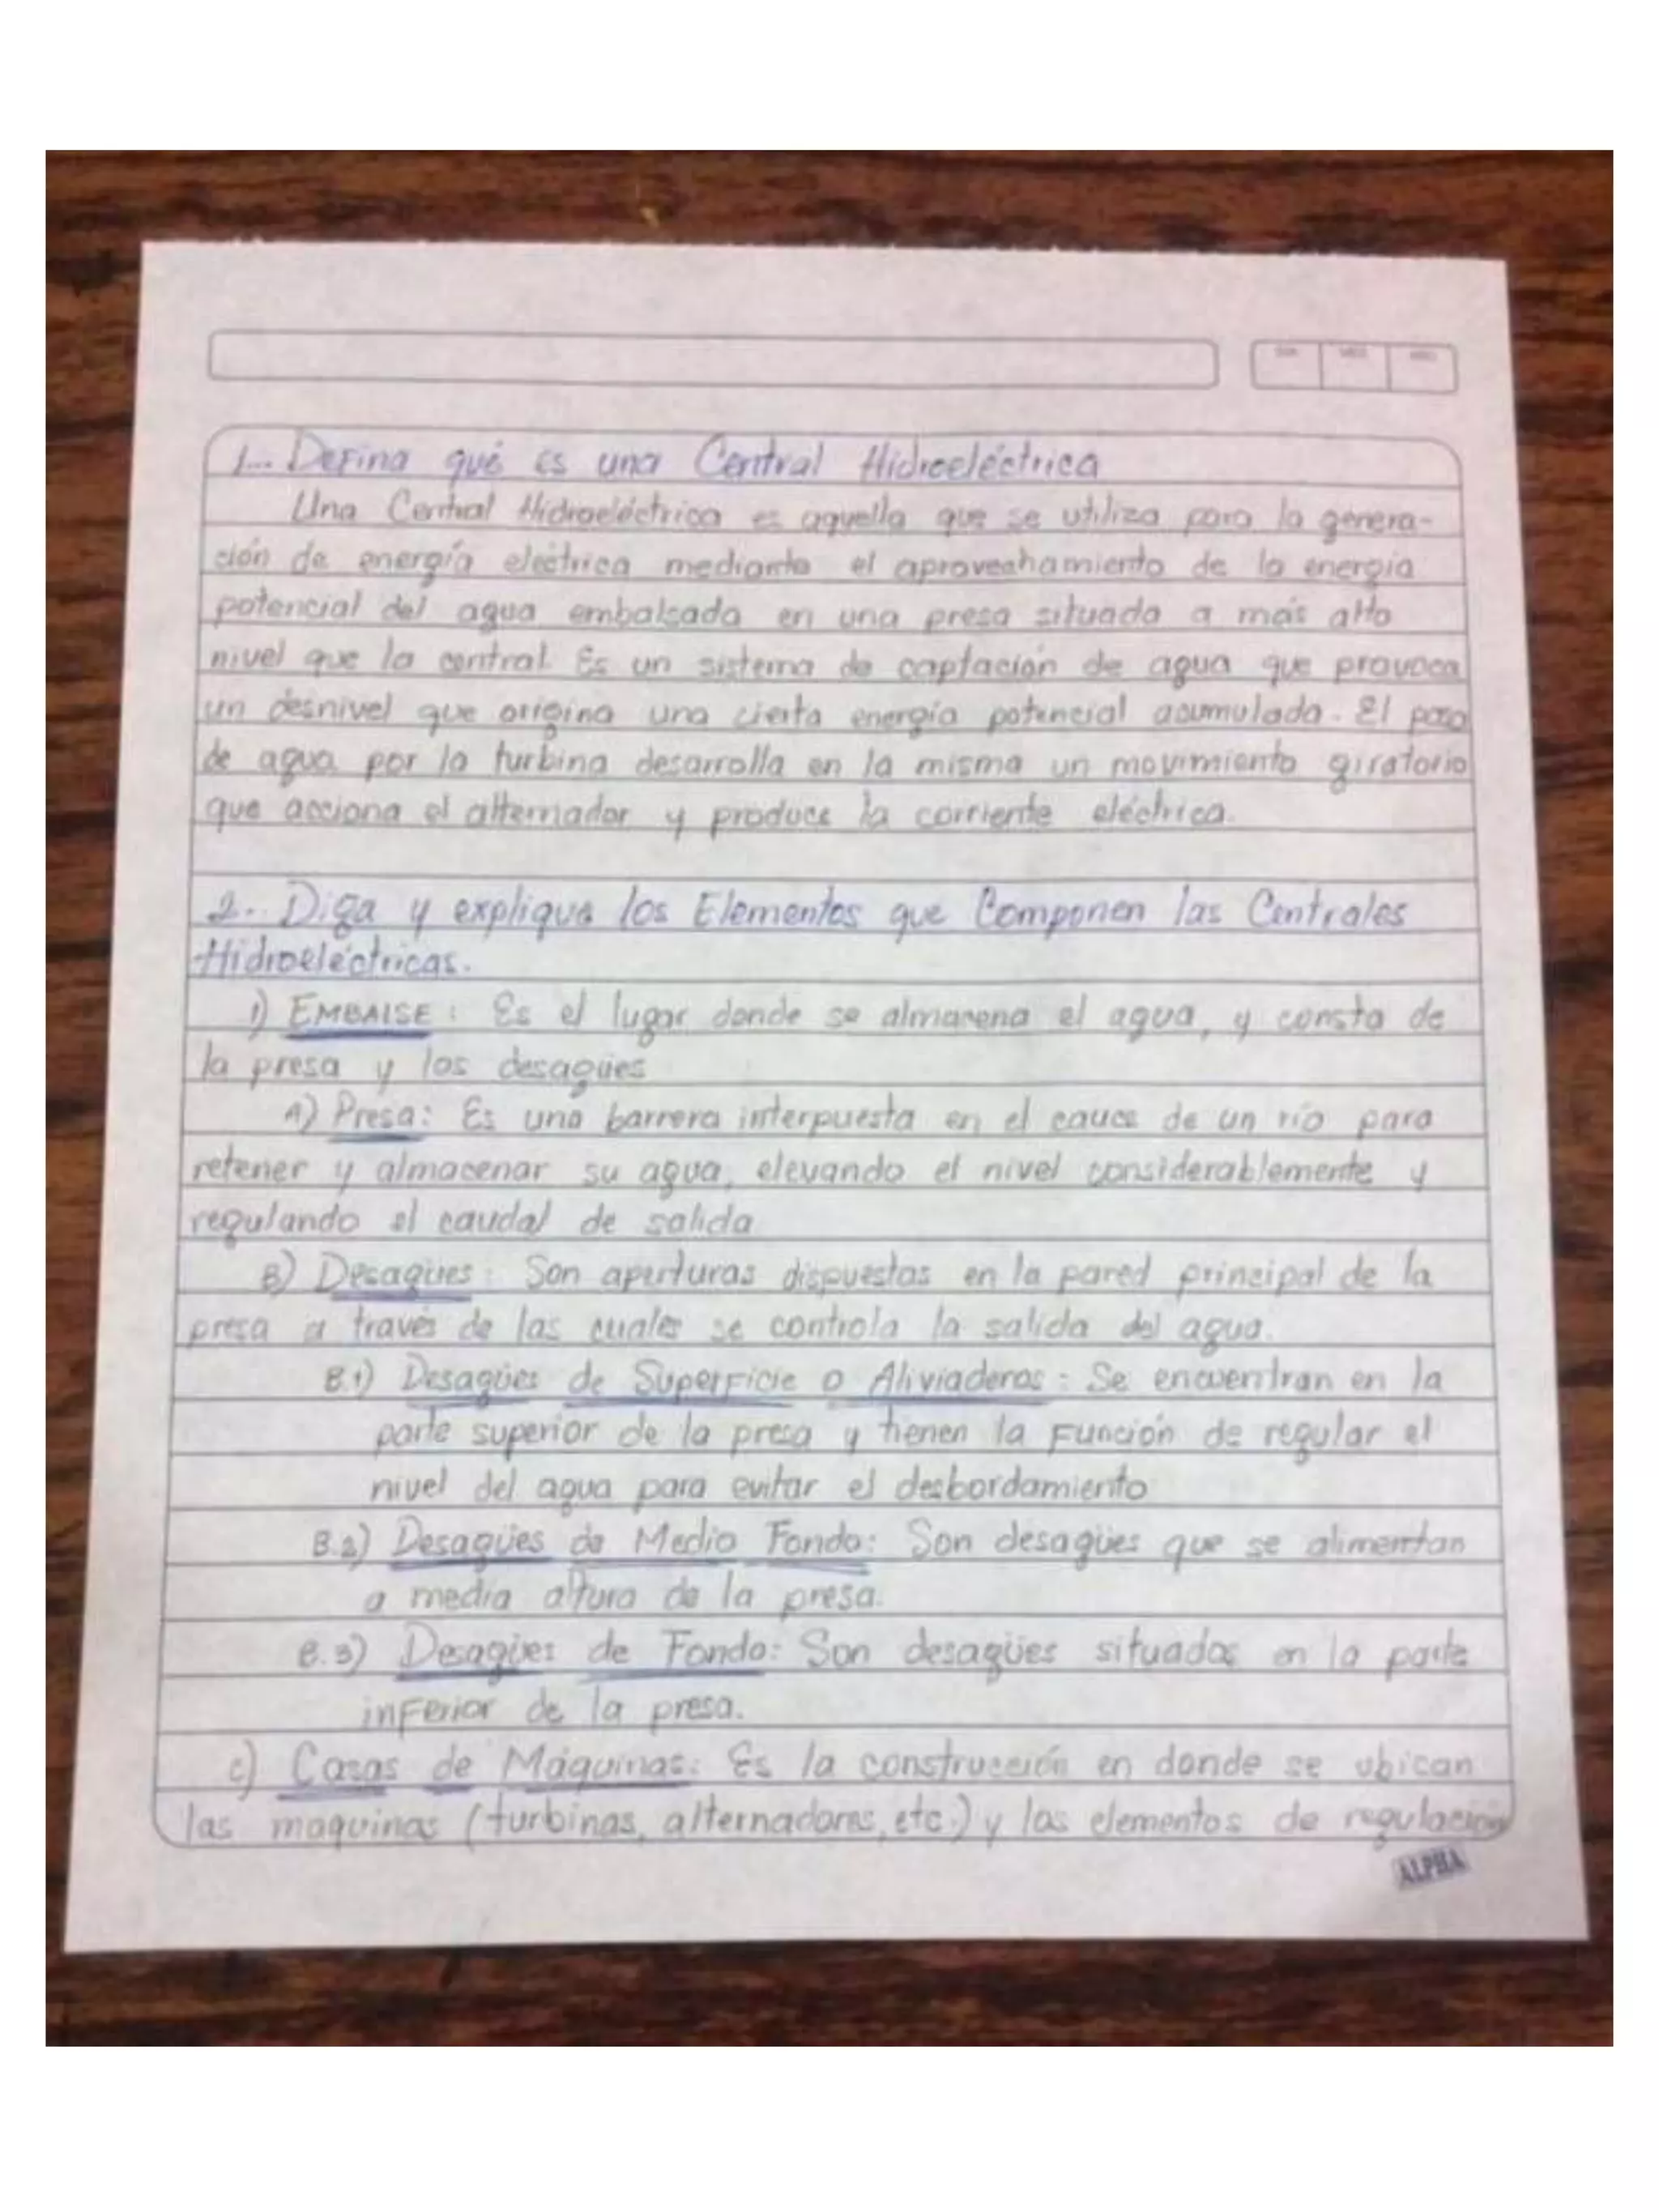 DIA MES AÑO
1.- Defina qué es una Central Hidroeléctrica
Una Central Hidroeléctrica es aquella que se utiliza para la genera-
ción de energía eléctrica mediante el aprovechamiento de la energía
potencial del agua embalsada en una presa situada a más alto
nivel que la central. Es un sistema de captación de agua que provoca
un desnivel que origina una cierta energía potencial acumulada. El paso
de agua por la turbina desarrolla en la misma un movimiento giratorio
que acciona el alternador y produce la corriente eléctrica.
2.- Diga y explique los Elementos que Componen las Centrales
Hidroeléctricas.
1) EMBALSE: Es el lugar donde se almacena el agua, y consta de
la presa y los desagües
A) Presa: Es una barrera interpuesta en el cauce de un río para
retener y almacenar su agua, elevando el nivel considerablemente y
regulando el caudal de salida
B) Desagües: Son aperturas dispuestas en la pared principal de la
presa a través de las cuales se controla la salida del agua.
B.1) Desagües de Superficie o Aliviaderos: Se encuentran en la
parte superior de la presa y tienen la función de regular el
nivel del agua para evitar el desbordamiento
B.2) Desagües de Medio Fondo: Son desagües que se alimentan
a media altura de la presa.
B.3) Desagües de Fondo: Son desagües situados en la parte
inferior de la presa.
C) Casas de Máquinas: Es la construcción en donde se ubican
las maquinas (turbinas, alternadores, etc.) y los elementos de regulación
ALPHA